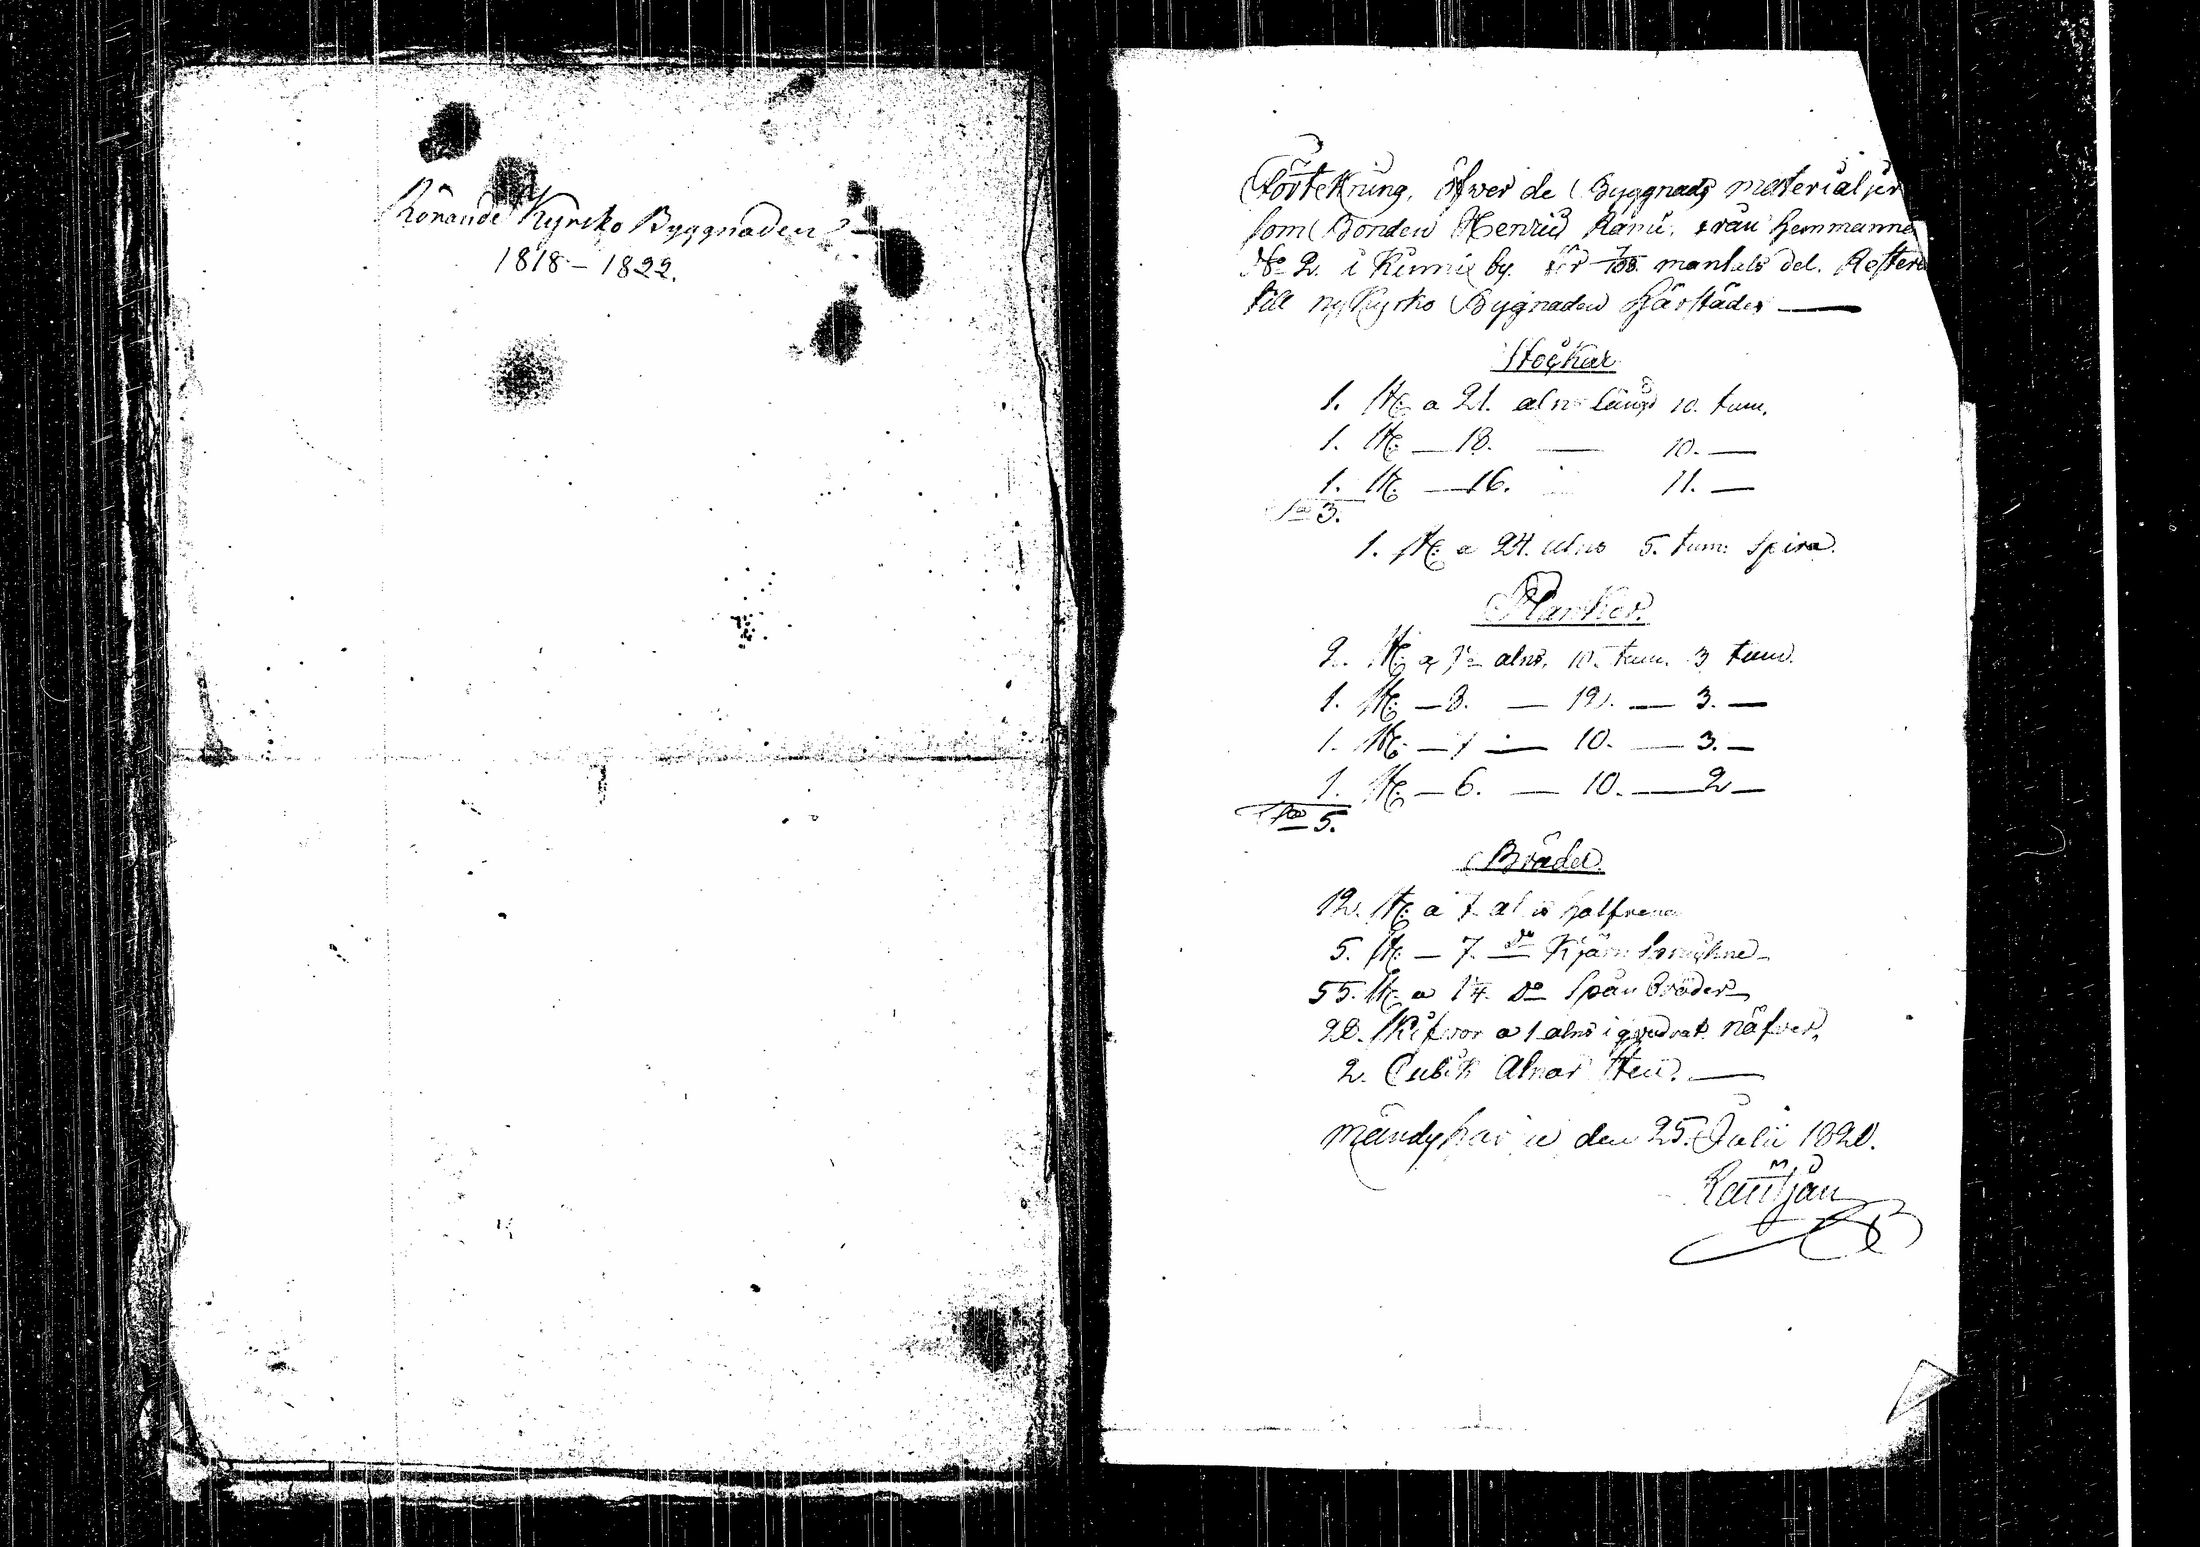 Rörande Kyrcko Byggnaden
1818 – 1822.
Förtekning, öfwer de Byggnads materialier
som Bonden Henrid frän hemmanne
No 2. i by. för mantals del. Restera
till ny Kyrko Bygnaden härstädes —
Stockar
1. St. a 21. aln längd 10. tum.
1. St. — 18. — 10. —
1. St. — 16. 11. —
Sa 3.
1. St. a 24. alns 5. tum: Spira.
Plankor.
2. St. a alns, 10. tum. 3 tum.
1. St. — 8. — 12. — 3. —
1. St. — 7 — 10. — 3. —
1. St. — 6. — 10. — 2 —
Sa 5.
Bräder.
12. St. a 7 alns halfrena
5. St. — 7. do
55. St. a do Spån bräder
28. Skifwor a 1 alns i qvadrat näfver,
2. Cubik Alnar Sten. —
den 25. Julii 1820.